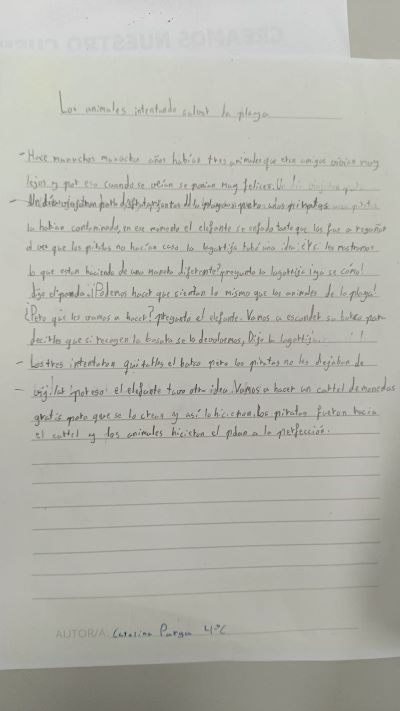 CREAMOS NUESTRO CUE
Los animales intentando salvar la playa
- Hace muenchos muncho años habian tres animales que eran amigos vivian muy
lejos y por eso cuando se veian se ponian muy felices. Un
- Un dia viajaban para disfrutar juntos de la playa pero unos piratas
la habian contaminado, en ese momento el elefante se enfado tanto que les fue a regañar
al ver que los piratas no hacian caso la lagartija tubo una idea: les mostramos
lo que estan haciendo de una maneta diferente? pregunto la lagartija ¡ya se como!
dijo el panda. ¡Podemos hacer que sientan lo mismo que los animales de la playa!
¿Pero que les vamos a hacer? pregunto el elefante. Vamos a esconder su barco para
decirles que si recogen la basura se lo devolvemos, Dijo la lagartija.
- Los tres intentaron quitarles el barco pero los piratas no les dejaban de
- vigilar ¡por eso! el elefante tuvo otra idea. Vamos a hacer un cartel de monedas
gratis para que se lo crean y asi lo hicieron, los piratas fueron hacia
el cartel y los animales hicieron el plan a la perfección.
AUTOR/A: Catalina 4ºC